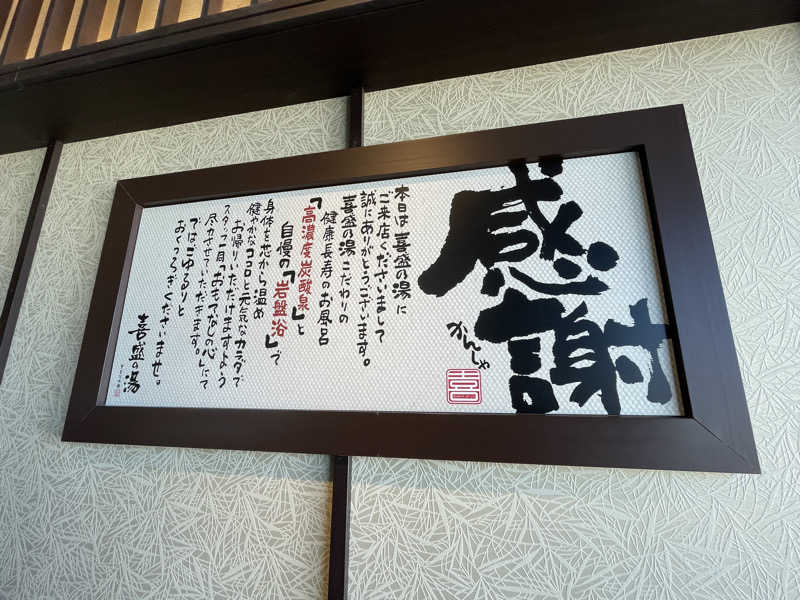 感謝
かんしゃ
喜
本日は喜盛の湯に
ご来店くださいまして
誠にありがとうございます。
喜盛の湯こだわりの
健康長寿のお風呂
「高濃度炭酸泉」と
自慢の「岩盤浴」で
身体を芯から温め
健やかなココロと元気なカラダで
お帰りいただけますよう
スタッフ一同「おもてなしの心」にて
尽力させていただきます。
ではごゆるりと
おくつろぎくださいませ。
喜盛の湯